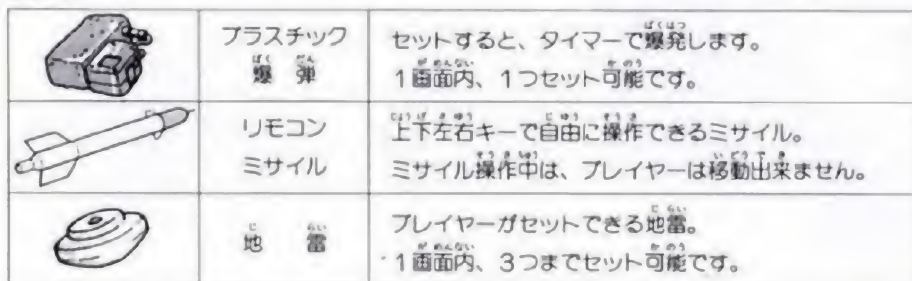 プラスチック
爆弾
セットすると、タイマーで爆発します。
1画面内、1つセット可能です。
リモコン
ミサイル
上下左右キーで自由に操作できるミサイル。
ミサイル操作中は、プレイヤーは移動出来ません。
地雷
プレイヤーがセットできる地雷。
1画面内、3つまでセット可能です。